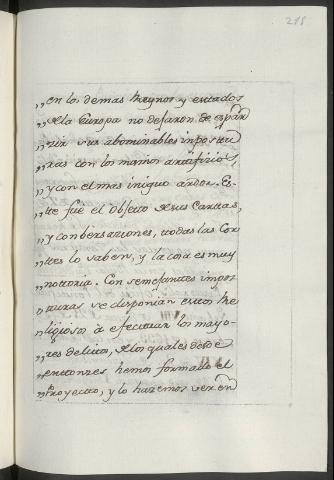 215
„ en los demas Reynos y estados
„ de la Europa no dejaron de espar
„ zir sus abominables impostu
„ ras con los mismos artifizios,
„ y con el mas iniquo ardor. Es-
„ te fue el objeto de sus Cartas,
„ y conbersaziones, todas las Cor
„ tes lo saben, y la cosa es muy
„ notoria. Con semejantes impos
„ turas se disponian estos Re
„ ligiosos à efectuar los mayo-
„ res delitos, de los quales desde
„ entonzes hemos formado el
„ Proyecto, y lo hazemos ver en